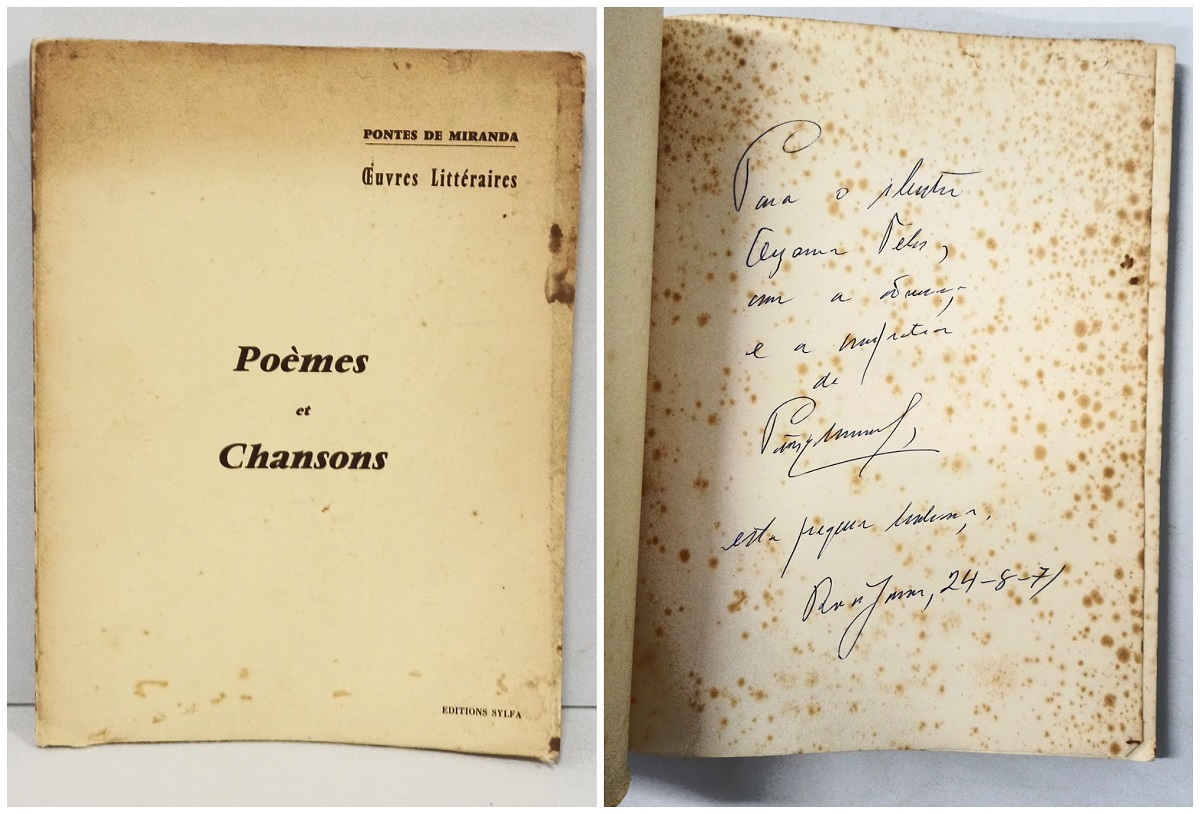 PONTES DE MIRANDA
Œuvres Littéraires
Poèmes
et
Chansons
EDITIONS SYLFA
Para o ilustre
com a
e a
de
esta pequena lembrança.
Rio de Janeiro, 24-8-71